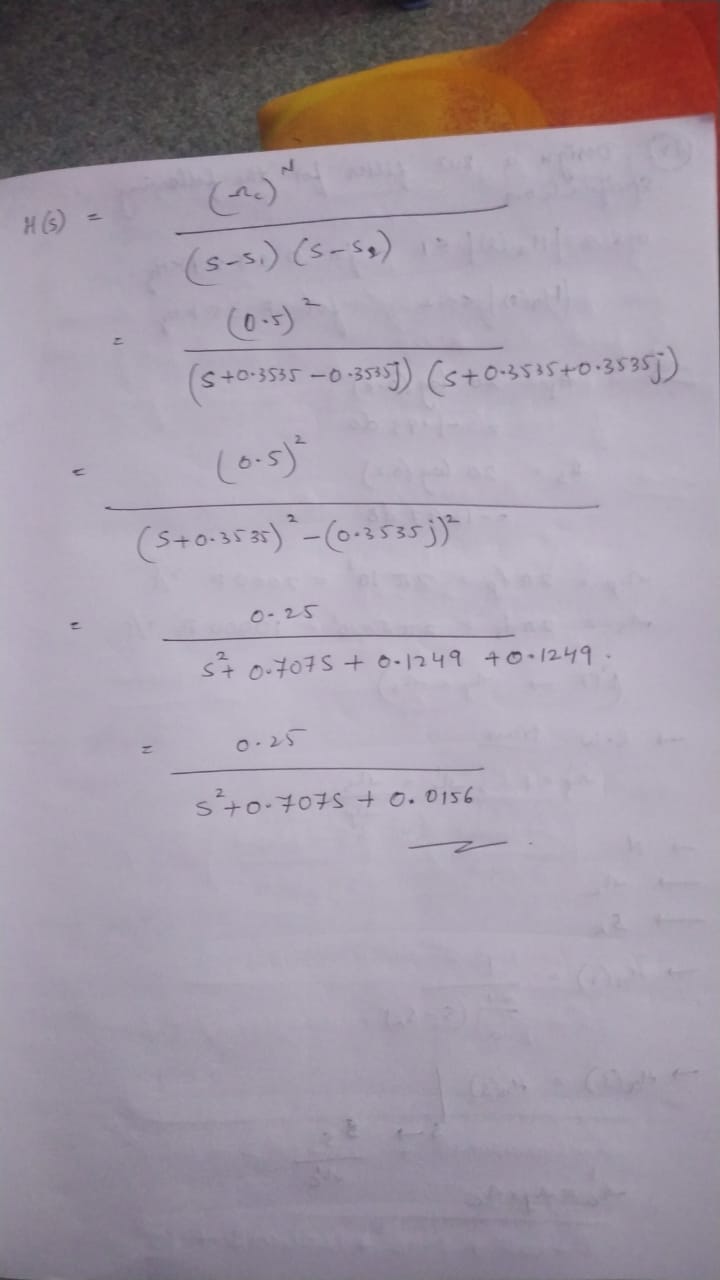 H(s) = (Ωc)^N / (s-s₁) (s-s₂)
= (0.5)² / (s+0.3535 -0.3535j) (s+0.3535+0.3535j)
= (0.5)² / (s+0.3535)² - (0.3535j)²
= 0.25 / s² + 0.707s + 0.1249 + 0.1249.
= 0.25 / s² + 0.707s + 0.0156